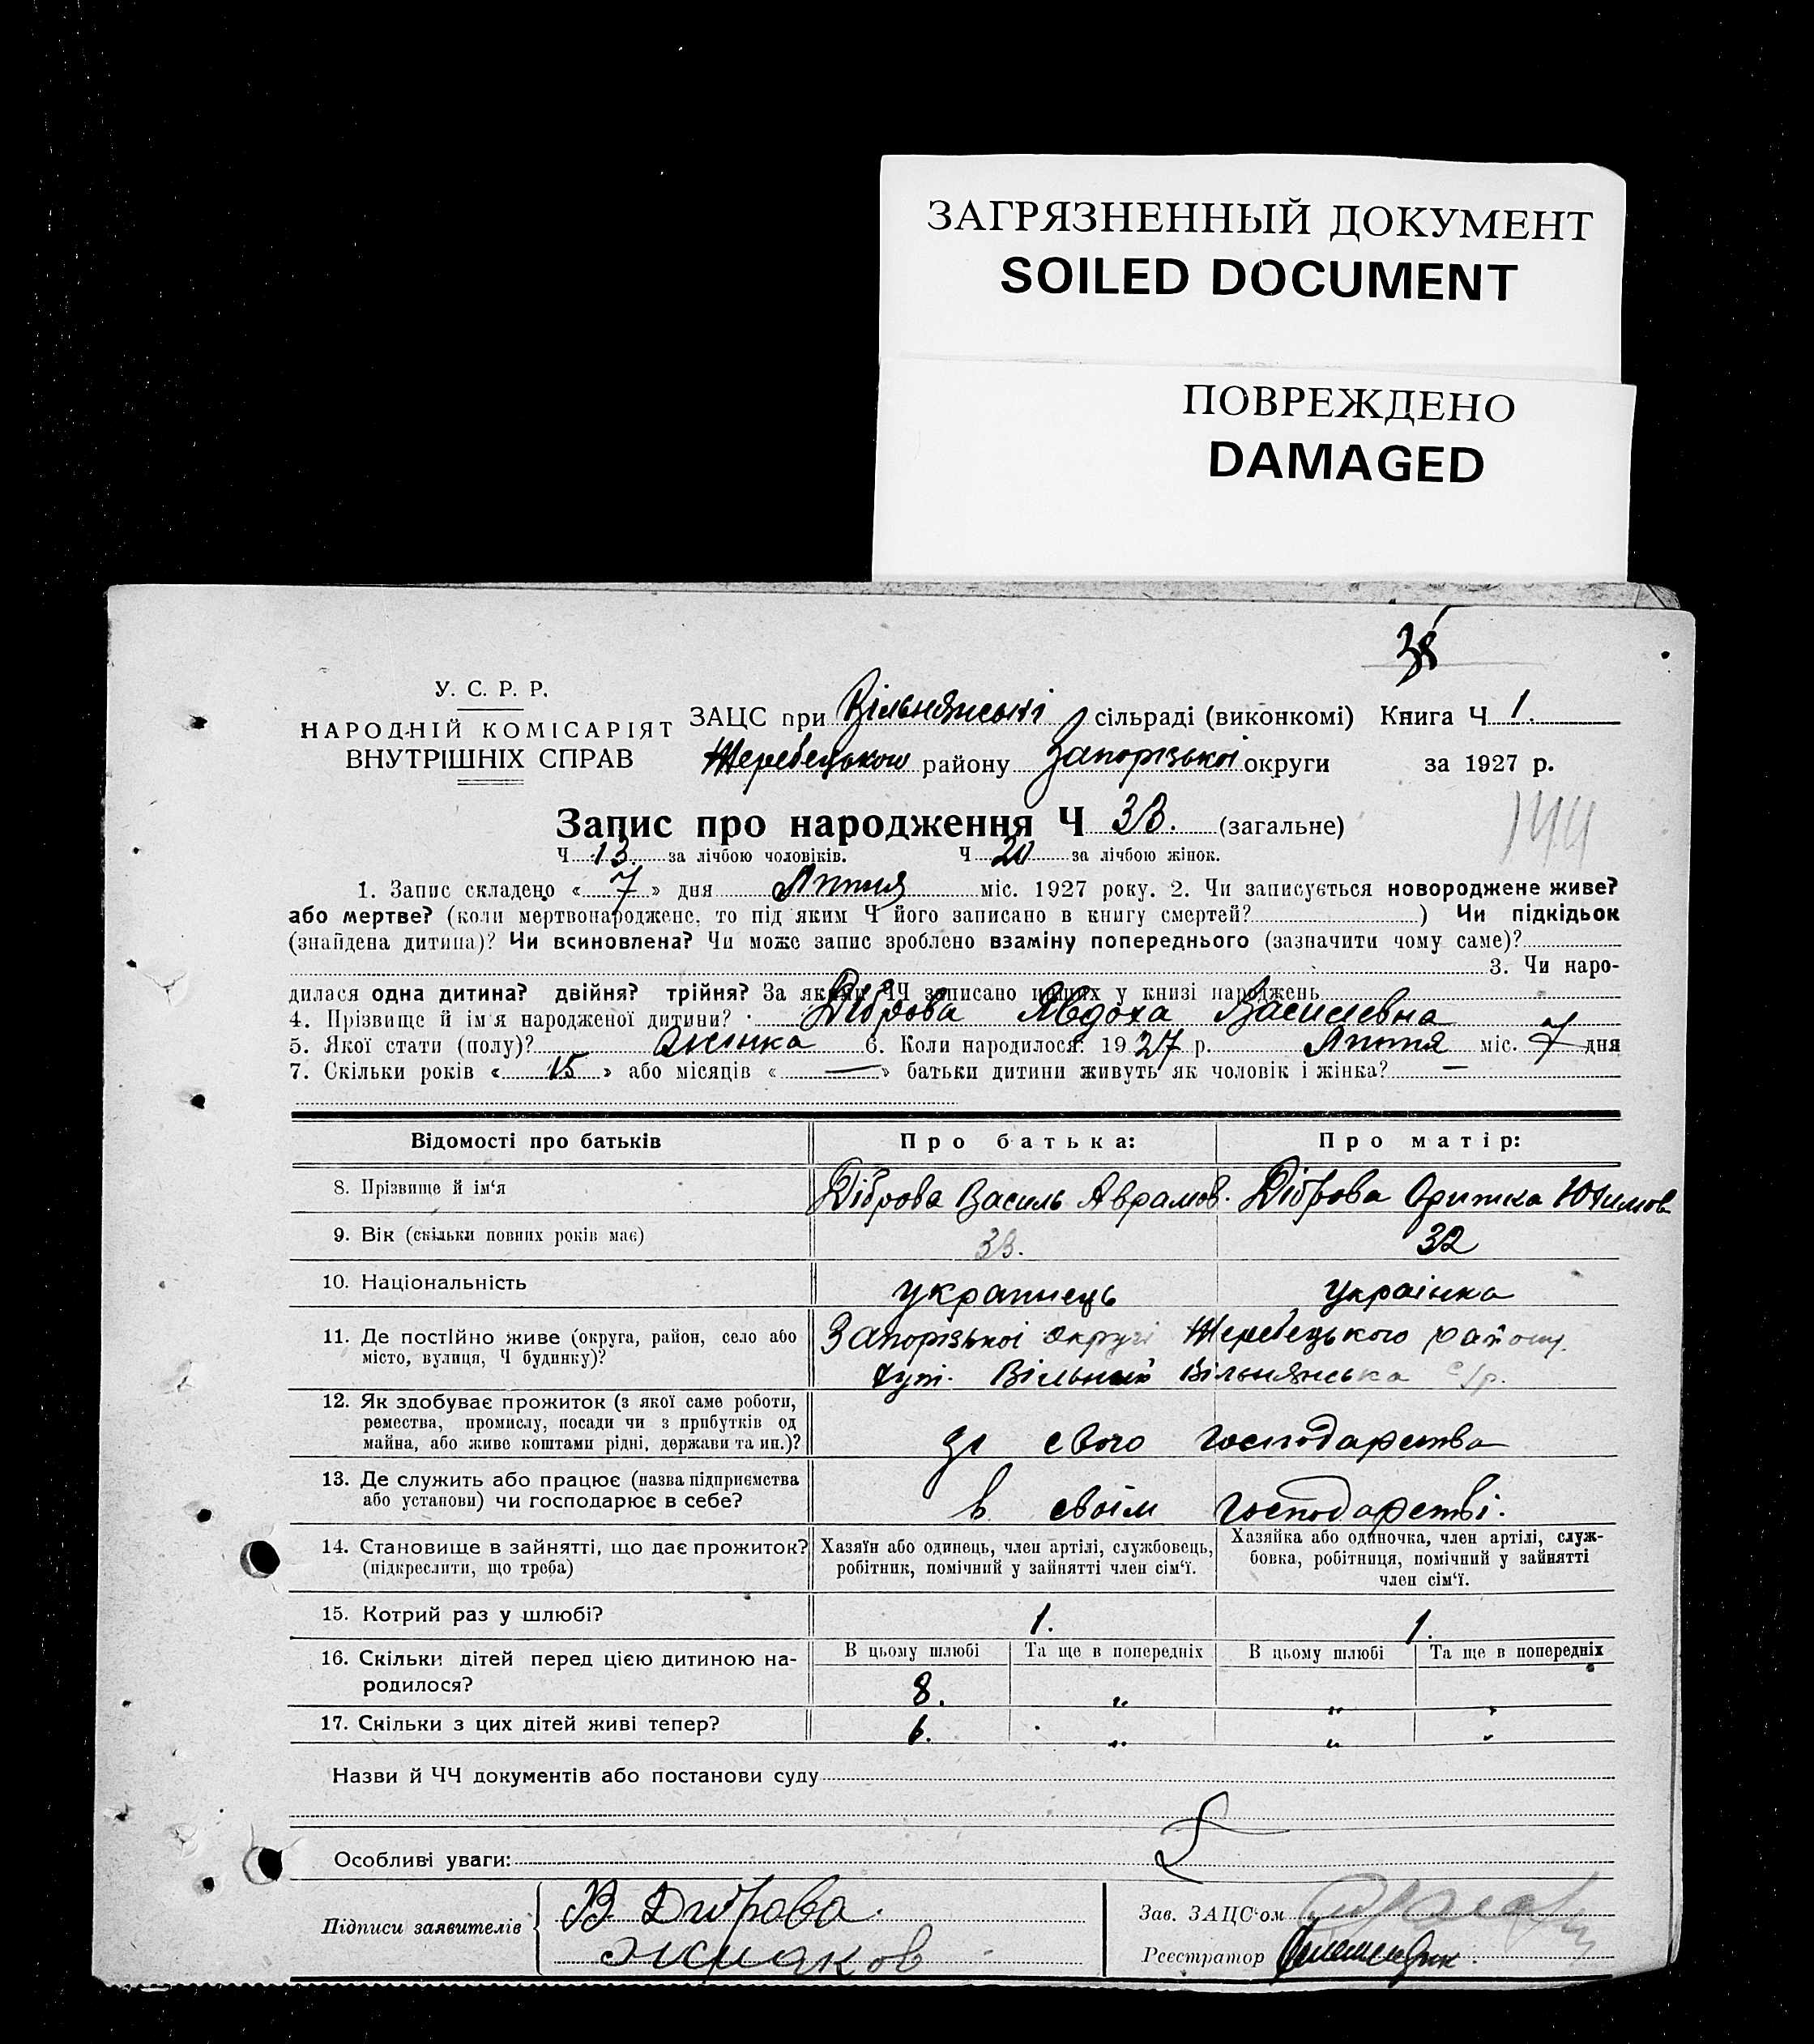 ЗАГРЯЗНЕННЫЙ ДОКУМЕНТ
SOILED DOCUMENT
ПОВРЕЖДЕНО
DAMAGED
38
У. С. Р. Р.
НАРОДНІЙ КОМІСАРІЯТ
ВНУТРІШНІХ СПРАВ
ЗАЦС при Вільнянські сільраді (виконкомі) Книга Ч 1.
Жеребецького району Запорізької округи за 1927 р.
Запис про народження Ч 33. (загальне)
144
Ч 13 за лічбою чоловіків. Ч 20 за лічбою жінок.
1. Запис складено « 7 » дня Липня міс. 1927 року. 2. Чи записується новороджене живе?
або мертве? (коли мертвонароджене, то під яким Ч його записано в книгу смертей? ) Чи підкідьок
(знайдена дитина)? Чи всиновлена? Чи може запис зроблено взаміну попереднього (зазначити чому саме)?
3. Чи наро-
дилася одна дитина? двійня? трійня? За якими ЧЧ записано инших у книзі народжень
4. Прізвище й ім'я народженої дитини? Діброва Явдоха Василевна
5. Якої стати (полу)? Жінка 6. Коли народилося: 1927 р. Липня міс. 7 дня
7. Скільки років « 15 » або місяців « — » батьки дитини живуть як чоловік і жінка? —
Відомості про батьків Про батька: Про матір:
8. Прізвище й ім‘я Діброва Василь Аврамов. Діброва Оришка Юхимов
9. Вік (скільки повних років має) 33. 32
10. Національність українець українка
11. Де постійно живе (округа, район, село або місто, вулиця, Ч будинку)? Запорізької округі Жеребецького району.
хут. Вільний Вільнянська с/р.
12. Як здобуває прожиток (з якої саме роботи,
ремества, промислу, посади чи з прибутків од
майна, або живе коштами рідні, держави та ин.)? зі свого господарства
13. Де служить або працює (назва підприємства
або установи) чи господарює в себе? в своїм господарстві.
14. Становище в зайнятті, що дає прожиток? (підкреслити, що треба)
Хазяїн або одинець, член артілі, службовець,
робітник, помічний у зайнятті член сім‘ї.
Хазяйка або одиночка, член артілі, служ-
бовка, робітниця, помічний у зайнятті
член сім‘ї.
15. Котрий раз у шлюбі? 1. 1.
В цьому шлюбі Та ще в попередніх В цьому шлюбі Та ще в попередніх
16. Скільки дітей перед цією дитиною на-
родилося? 8. „ „ „
17. Скільки з цих дітей живі тепер? 6. „ „ „
Назви й ЧЧ документів або постанови суду
Особливі уваги:
Підписи заявителів В Диброва.
Зав. ЗАЦС‘ом
Реєстратор